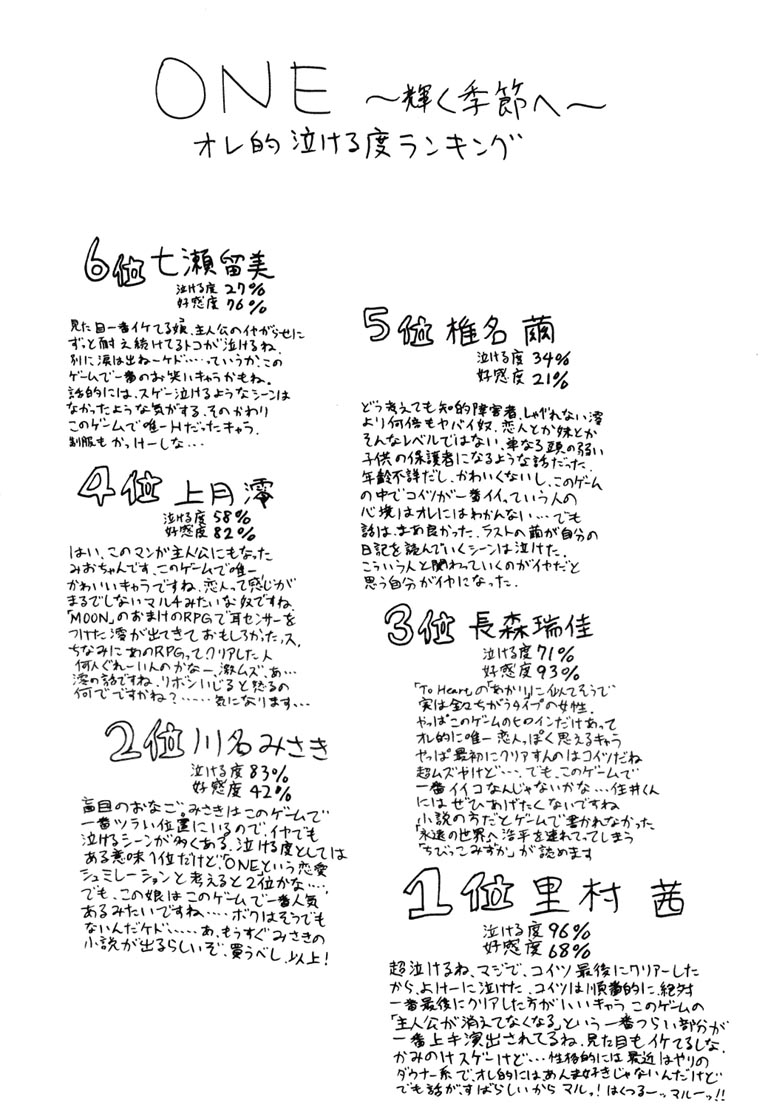 ONE ～輝く季節へ～
オレ的泣ける度ランキング
6位 七瀬留美
泣ける度 27%
好感度 76%
見た目一番イケてる娘、主人公のイヤがらせに
ずっと耐え続けてるトコが泣けるね、
別に涙は出ねーケド……っていうか、この
ゲームで一番のお笑いキャラかもね。
話的には、スゲー泣けるようなシーンは
なかったような気がする、そのかわり
このゲームで唯一Hだったキャラ、
制服もかっけーしな…
5位 椎名 繭
泣ける度 34%
好感度 21%
どう考えても知的障害者、しゃべれない澪
より何倍もヤバイ奴、恋人とか妹とか
そんなレベルではない、単なる頭の弱い
子供の保護者になるような話だった、
年齢不詳だし、かわいくないし、このゲーム
の中でコイツが一番イイっていう人の
心境はオレにはわかんない…でも
話は、まぁ良かった、ラストの繭が自分の
日記を読んでいくシーンは泣けた、
こういう人と関わっていくのがイヤだと
思う自分がイヤになった．
4位 上月澪
泣ける度 58%
好感度 82%
はい、このマンガ主人公にもなった
みおちゃんです、このゲームで唯一
かわいいキャラですね、恋人って感じが
まるでしないマルチみたいな奴ですね、
「MOON」のおまけのRPGで耳センサーを
つけた澪が出てきておもしろかったス，
ちなみにあのRPGってクリアした人
何人ぐれーいんのかなー、激ムズ、あ…
澪の話ですね、リボンいじると怒るの
何でですかね？……気になります…
3位 長森瑞佳
泣ける度 71%
好感度 93%
「To Heart」の「あかり」に似てそうで
実は全々ちがうタイプの女性．
やっぱこのゲームのヒロインだけあって
オレ的に唯一恋人っぽく思えるキャラ
やっぱ最初にクリアすんのはコイツだね
超ムズやけど…．でも、このゲームで
一番イイコなんじゃないかな…住井くん
にはぜひあげたくないですね
小説の方だとゲームで書かれなかった
「永遠の世界へ浩平を連れてってしまう
「ちびっこみずか」が読めます
2位 川名みさき
泣ける度 83%
好感度 42%
盲目のおなご。みさきはこのゲームで
一番ツラい位置にいるので、イヤでも
泣けるシーンが多くある、泣ける度としては
ある意味1位だけど、"ONE"という恋愛
シュミレーションと考えると2位かな…．
でも、この娘はこのゲームで一番人気
あるみたいですね…．ボクはそうでも
ないんだケド…．．あ、もうすぐみさきの
小説が出るらしいぞ、買うべし、以上！
1位 里村 茜
泣ける度 96%
好感度 68%
超泣けるね、マジで、コイツ最後にクリアーした
から、よけーに泣けた、コイツは順番的に、絶対
一番最後にクリアした方がいいキャラ このゲームの
「主人公が消えてなくなる」という一番つらい部分が
一番上手演出されてるね、見た目もイケてるしな、
かみのけスゲーけど…性格的には最近はやりの
ダウナー系で、オレ的にはあんま好きじゃないんだけど
でも話が、すばらしいからマルっ！はくつるーッマルーっ!!